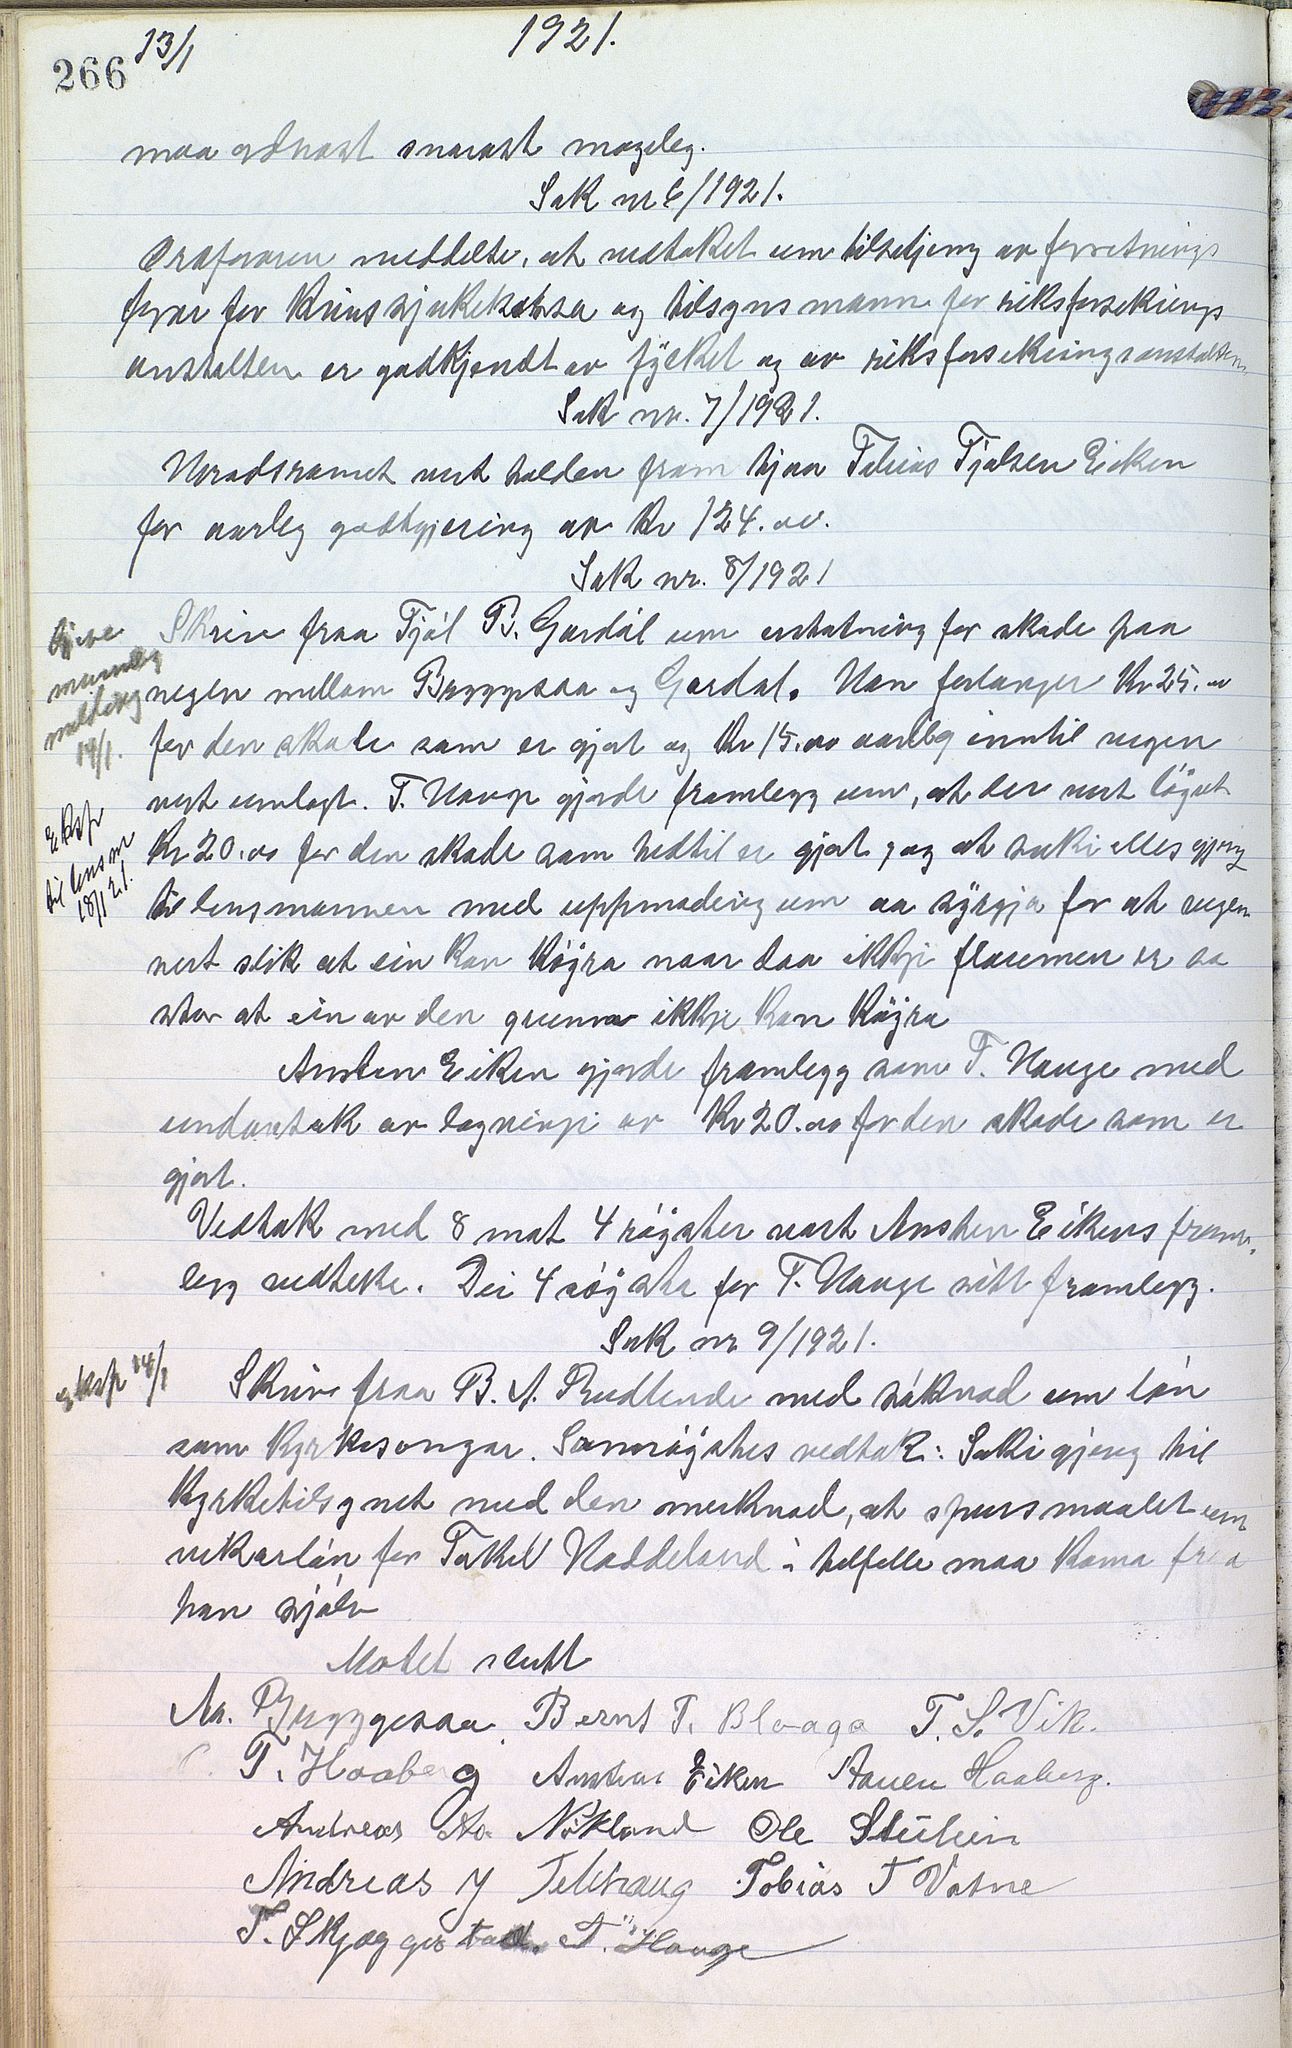 266
13/1
1921.
maa ordnast snarast mogeleg.
Sak nr 6/1921.
Ordføraren meddelte, at vedtaket um tilsetjing av forretnings
førar for Krinssjukekassa og tilsynsmann for riksforsekrings
anstalten er godkjendt av fylket og av riksforsekringsanstalten.
Sak nr. 7/1921.
Heradsromet vert halden fram hjaa Tobias Tjølsen Eiken
for aarleg godtgjering av Kr 124.00.
Sak nr. 8/1921
Skriv fraa Tjøl B. Gardøl um erstatning for skade paa
vegen millom Bryggesaa og Gardøl. Han forlanger Kr 25.00
for den skade som er gjort og Kr 15.00 aarleg inntil vegen
vert umlagt. T. Hauge gjorde framlegg um, at der vert løyvt
Kr 20.00 for den skade som hedtil er gjort, og at saki elles gjeng
til lensmannen med uppmoding um aa syrgja for at vegen
vert slik at ein kan køyra naar daa ikkje flaumen er so
stor at ein av den grunn ikkje kan køyra
Ansten Eiken gjorde framlegg som T. Hauge med
undantak av løgvingi av Kr 20.00 for den skade som er
gjort.
Vedtak med 8 mot 4 røyster vart Ansten Eikens fram-
legg vedteke. Dei 4 røyste for T. Hauge sitt framlegg.
Sak nr 9/1921.
Skriv fraa B. A. Rudlende med søknad um løn
som kyrkjesongar. Samrøystes vedtak: Saki gjeng til
kyrketilsynet med den merknad, at spursmaalet um
vikarløn for Torkel Haddeland i tilfelle maa koma fraa
han sjølv
Møtet slutt
Aa. Bryggesaa Bernt T. Bleaga T. S. Vik.
T. Haaberg Ansten Eiken Aanen Haaberg.
Andreas Aa. Nökland Ole Stulien
Andreas J Telthaug Tobias T Vatne
T. Skjeggestad. T. Hauge
Gjeve
munnleg
melding
14/1.
Eksp
til lensm
18/1 21.
eksp 14/1